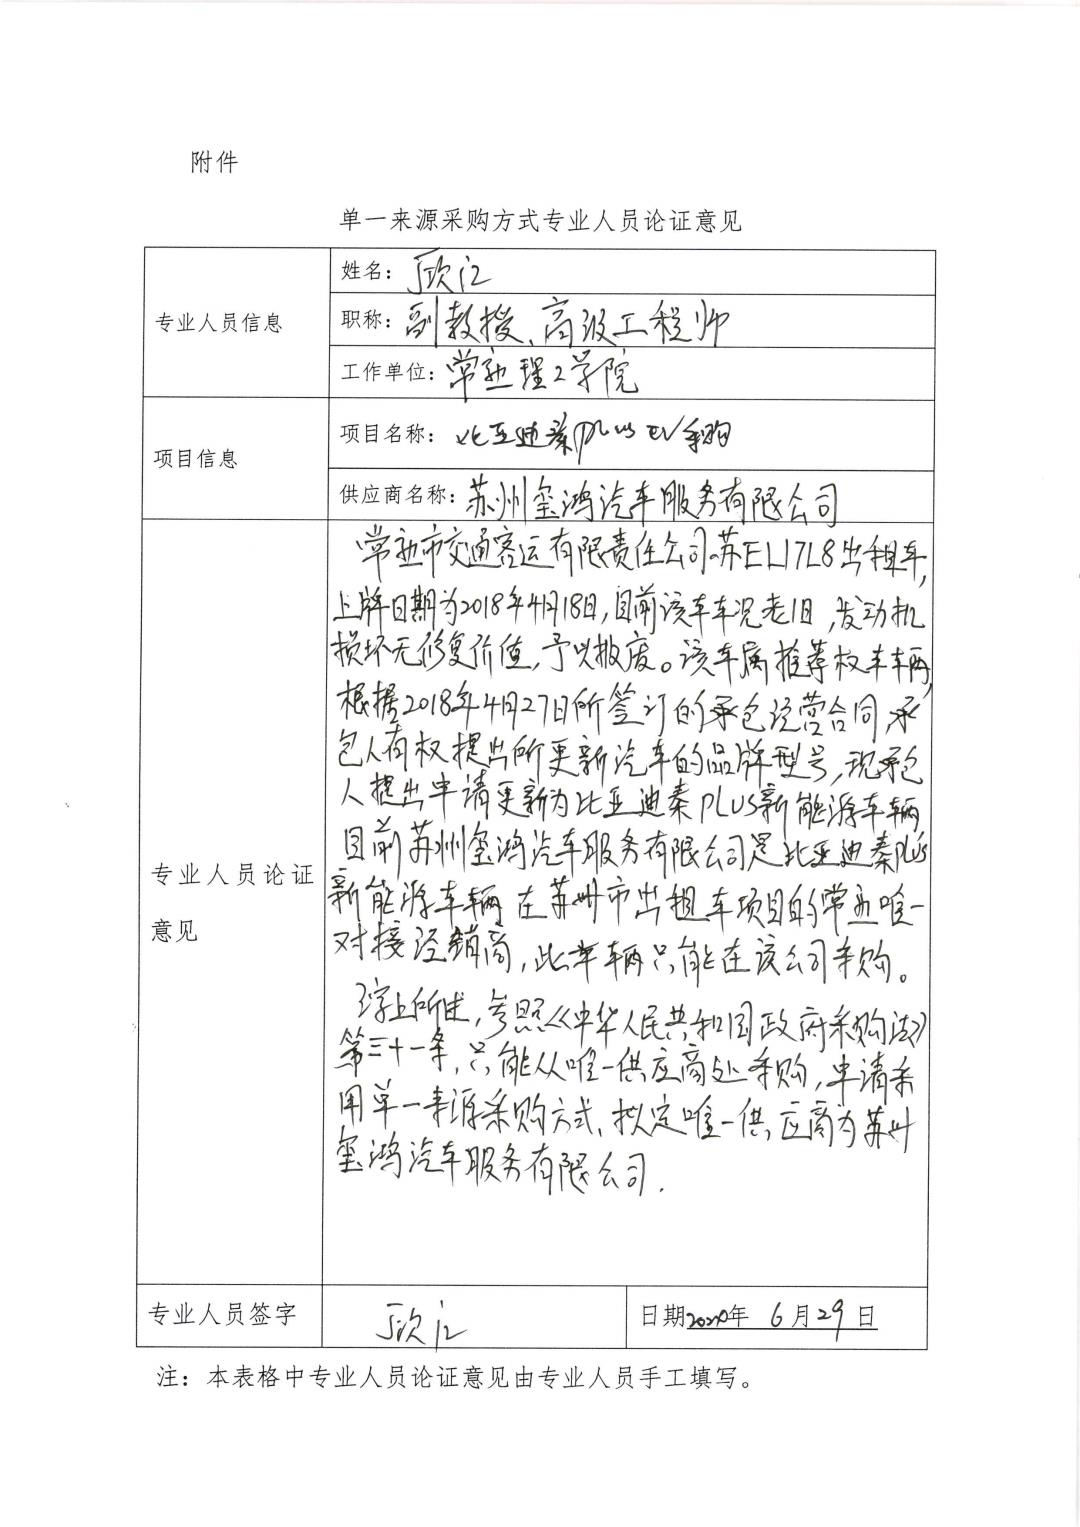 附件
单一来源采购方式专业人员论证意见
专业人员信息
姓名：
职称：副教授、高级工程师
工作单位：常熟理工学院
项目信息
项目名称：比亚迪秦PLUS EV采购
供应商名称：苏州玺鸿汽车服务有限公司
专业人员论证
意见
常熟市交通客运有限责任公司苏EL17L8出租车，
上牌日期为2018年4月18日，目前该车车况老旧，发动机
损坏无修复价值，予以报废。该车属推荐权车辆，
根据2018年4月27日所签订的承包经营合同承
包人有权提出所更新汽车的品牌型号，现承包
人提出申请更新为比亚迪秦PLUS新能源车辆，
目前苏州玺鸿汽车服务有限公司是比亚迪秦PLUS
新能源车辆在苏州市出租车项目的常熟唯一
对接经销商，此车辆只能在该公司采购。
综上所述，参照《中华人民共和国政府采购法》
第三十一条，只能从唯一供应商处采购，申请采
用单一来源采购方式，拟定唯一供应商为苏州
玺鸿汽车服务有限公司.
专业人员签字
日期 年 6月29日
注：本表格中专业人员论证意见由专业人员手工填写。